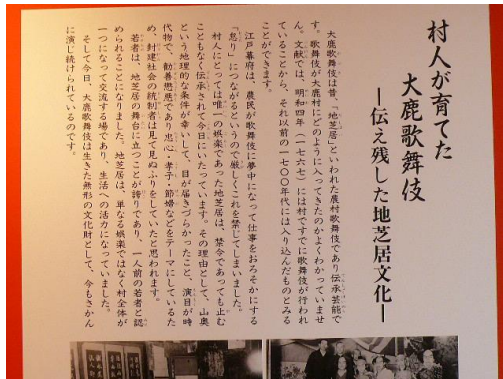 村人が育てた
大鹿歌舞伎
―伝え残した地芝居文化―
大鹿歌舞伎は昔「地芝居」といわれた農村歌舞伎であり伝承芸能で
す。歌舞伎が大鹿村にどのように入ってきたのかよくわかっていませ
ん。文献では、明和四年(一七六七)には村ですでに歌舞伎が行われ
ていることから、それ以前の一七〇〇年代には入り込んだものとみる
ことができます。
江戸幕府は、農民が歌舞伎に夢中になって仕事をおろそかにする
「怠り」につながるというので厳しくこれを禁じてしまいました。
村人にとっては唯一の娯楽であった地芝居は、禁令であっても止む
こともなく伝承されて今日にいたっています。その理由として、山奥
という地理的な条件が幸いして、目が届きづらかったこと、演目が時
代物で、勧善懲悪であり忠心・孝子・節婦などをテーマにしているた
め、封建社会の統制者は見て見ぬふりをしていたと思われます。
若者は、地芝居の舞台に立つことが誇りであり、一人前の若者と認
められることになりました。地芝居は、単なる娯楽ではなく村全体が
一つになって交流する場であり、生活への活力になっていました。
そして今日、大鹿歌舞伎は生きた無形の文化財として、今もさかん
に演じ続けられているのです。